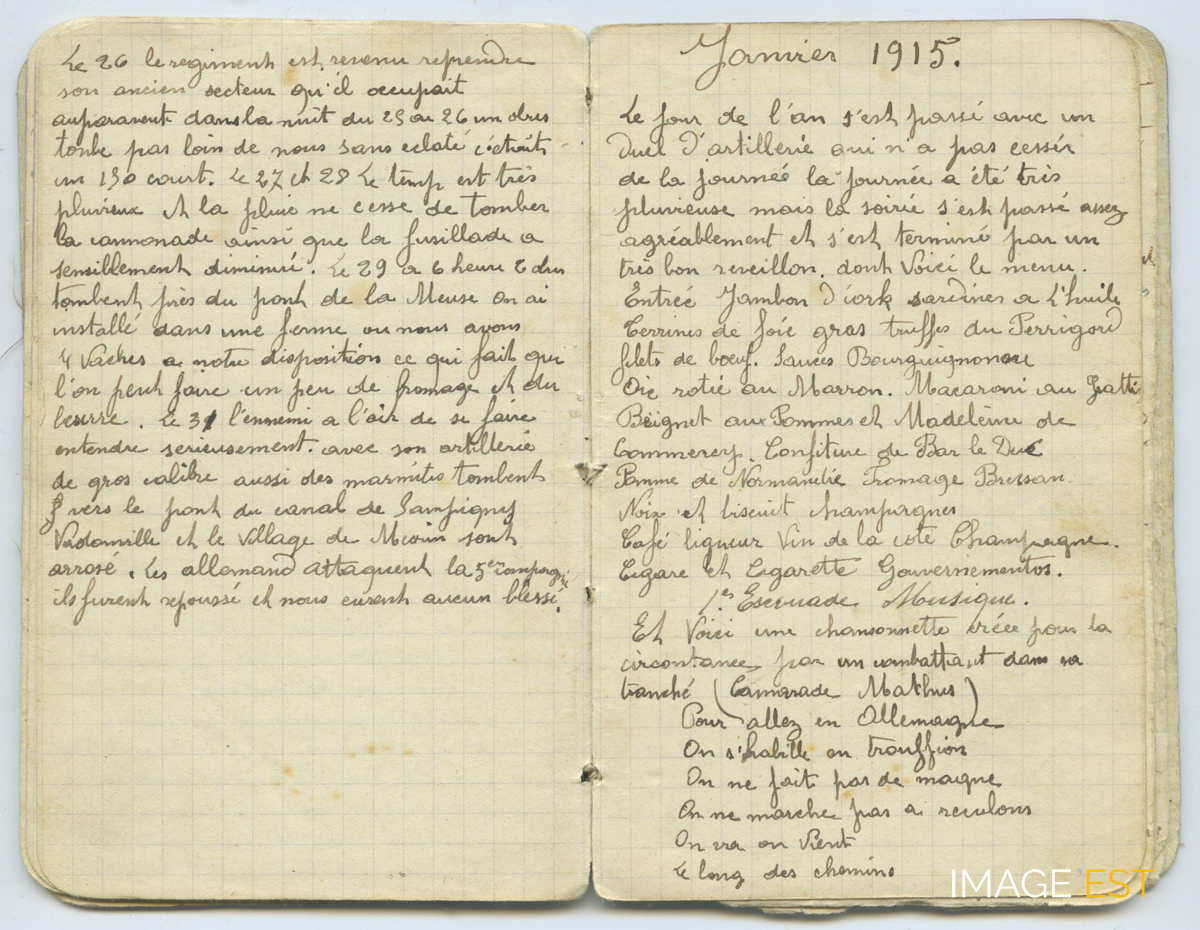 Le 26 le regiment est revenu reprendre
son ancien secteur qu'il occupait
auparavent dans la nuit du 25 au 26 un obus
tombe pas loin de nous sans eclaté c'etait
un 130 court. Le 27 et 28 Le temp est très
pluvieux et la pluie ne cesse de tomber
la cannonade ainsi que la fusillade a
sensiblement diminué. Le 29 a 6 heure 2 obus
tombent près du pont de la Meuse On ai
installé dans une ferme ou nous avons
4 Vaches a notre disposition ce qui fait que
l'on peut faire un peu de fromage et du
beurre. Le 31 l'ennemi a l'air de se faire
entendre serieusement avec son artillerie
de gros calibre aussi des marmites tombent
vers le pont du canal de Sampigny
Vadonville et le village de sont
arrosé. Les allemand attaquent la 5em compagnie
ils furent repoussé et nous eurent aucun blessé.
Janvier 1915.
Le jour de l'an s'est passé avec un
Duel d'artillerie qui n'a pas cessér
de la journeé la journeé a été très
pluvieuse mais la soirée s'est passé assez
agréablement et s'est terminé par un
très bon reveillon. dont Voici le menu.
Entreé Jambon D'iork sardines a L'huile
Terrines de foie gras truffes du Perrigord
filets de bœuf. Sauces
Oie rotie au Marron. Macaroni au Gratti
Beignet aux Pommes et Madeleine de
Commercy. Confiture de Bar le Duc
Pomme de Normandie Fromage Bressan
Noix et biscuit champagnes
Café liqueur Vin de la cote Champagne.
Cigare et Cigarette Gouvernementos.
1es Escouade Musique.
Et Voici une chansonnette créee pour la
circontance par un combattant dans sa
tranché (Camarade Mathus)
Pour allez en Allemagne
On s'habille en trouffion
On ne fait pas de magne
On ne marche pas a reculons
On va on Vient
Le long des chemins
IMAGE EST